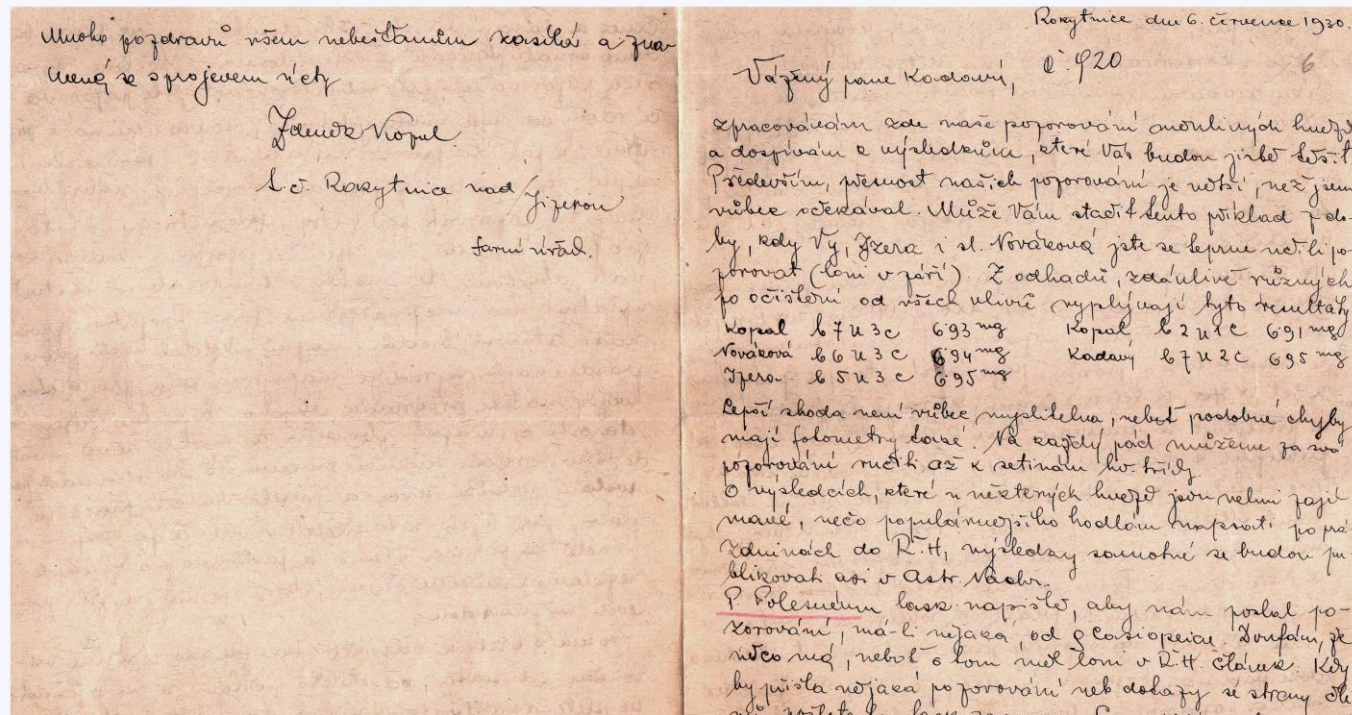 Mnoho pozdravů všem nebešťanům zasílá a zna-
mená se s projevem úcty
Zdeněk Kopal
t. č. Rokytnice nad Jizerou
farní úřad.
Rokytnice dne 6. července 1930.
č. 920
6
Vážený pane Kadavý,
zpracovávám zde naše pozorování měnlivých hvězd
a dospívám k výsledkům, které Vás budou jistě těšit.
Především, přesnost našich pozorování je větší, než jsem
vůbec očekával. Může Vám stačit tento příklad z do-
by, kdy Vy, Jzera i sl. Nováková jste se teprve učili po-
zorovat (loni v září). Z odhadů, zdánlivě různých
po očištění od všech vlivů vyplývají tyto resultáty
Kopal b7u3c 6.93 mg Kopal b2u1c 6.91 mg
Nováková b6u3c 6.94 mg Kadavý b7u2c 6.95 mg
Jzera b5u3c 6.95 mg
Lepší shoda není vůbec myslitelna, neboť podobné chyby
mají fotometry také. Na každý pád můžeme za svá
pozorování ručit až k setinám hv. třídy.
O výsledcích, které u některých hvězd jsou velmi zají-
mavé, něco populárnějšího hodlám napsati po prá-
zdninách do Ř.H, výsledky samotné se budou pu-
blikovati asi v Astr. Nachr.
P. Polesnému lask. napište, aby nám poslal po-
zorování, má-li nějaká, od ρ Casiopeiae. Doufám, že
něco má, neboť o tom měl loni v Ř.H. článek. Kdy-
by přišla nějaká pozorování neb dotazy se strany čle-